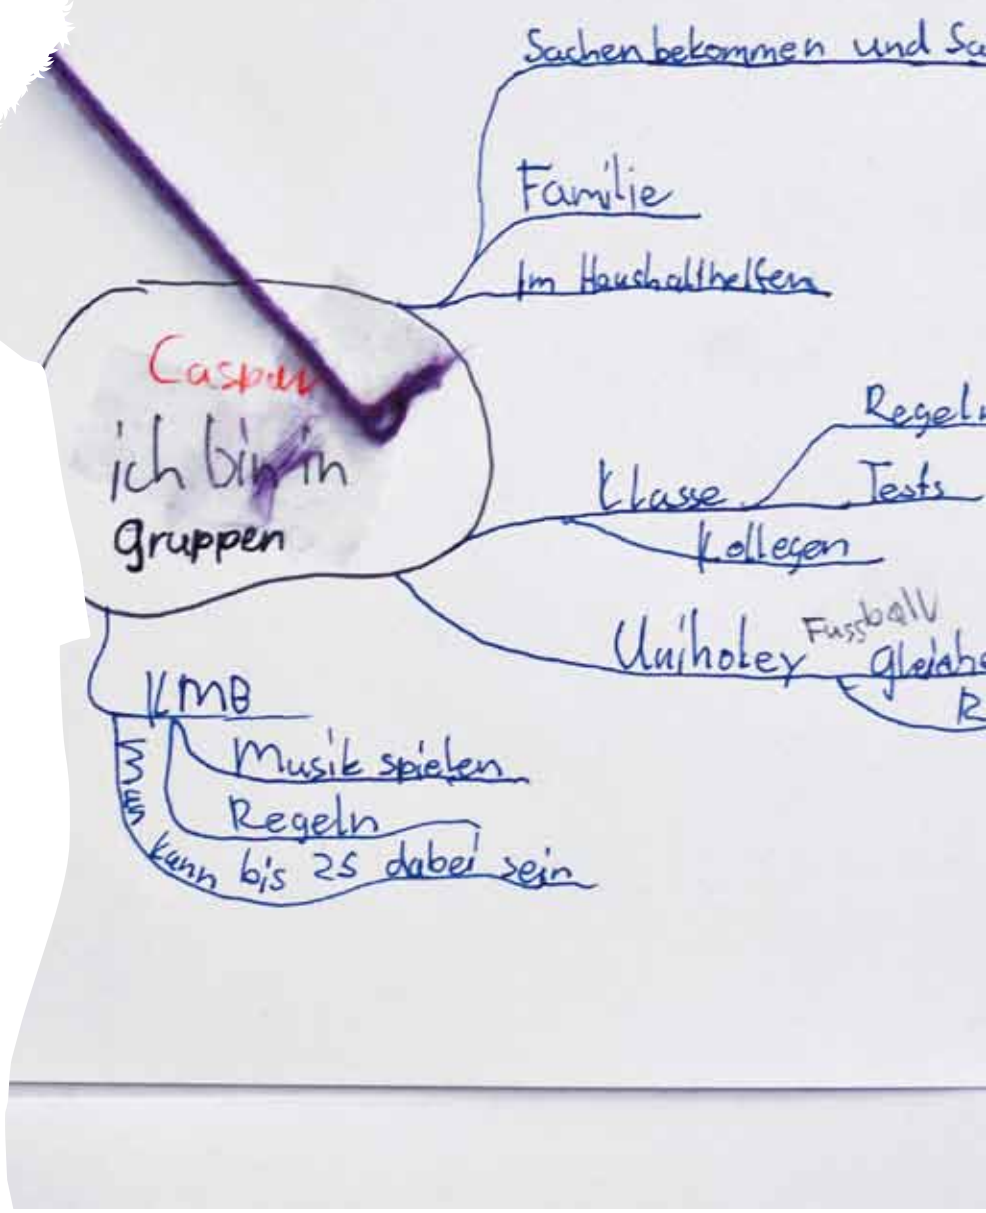 Sachen bekommen und Sa
Familie
Im Haushalt helfen
Caspar
ich bin in
gruppen
Klasse
Regeln
Tests
Kollegen
Unihokey
Fussball
gleiche
R
KMB
Musik spielen
Regeln
kann bis 25 dabei sein